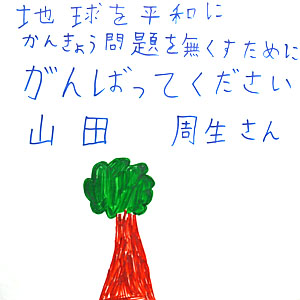 地球を平和に
かんきょう問題を無くすために
がんばってください
山田 周生さん